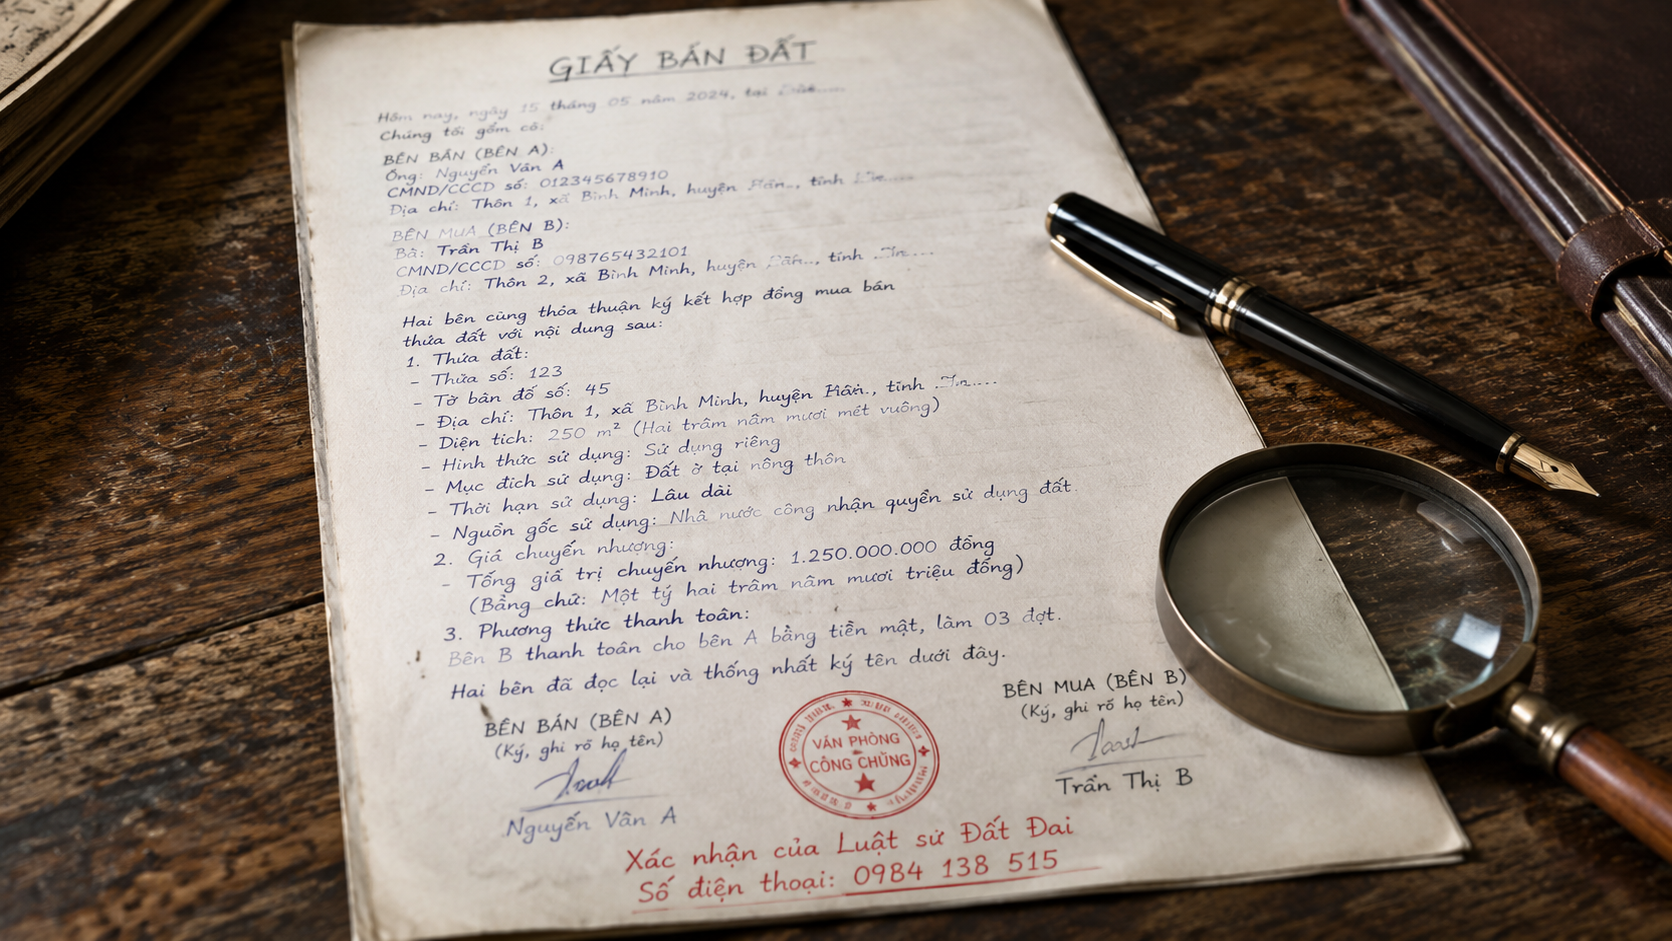 GIẤY BÁN ĐẤT
Hôm nay, ngày 15 tháng 05 năm 2024, tại
Chúng tôi gồm có:
BÊN BÁN (BÊN A):
Ông: Nguyễn Văn A
CMND/CCCD số: 012345678910
Địa chỉ: Thôn 1, xã Bình Minh, huyện tỉnh
BÊN MUA (BÊN B):
Bà: Trần Thị B
CMND/CCCD số: 098765432101
Địa chỉ: Thôn 2, xã Bình Minh, huyện tỉnh
Hai bên cùng thỏa thuận ký kết hợp đồng mua bán
thửa đất với nội dung sau:
1. Thửa đất:
- Thửa số: 123
- Tờ bản đồ số: 45
- Địa chỉ: Thôn 1, xã Bình Minh, huyện tỉnh
- Diện tích: 250 m² (Hai trăm năm mươi mét vuông)
- Hình thức sử dụng: Sử dụng riêng
- Mục đích sử dụng: Đất ở tại nông thôn
- Thời hạn sử dụng: Lâu dài
- Nguồn gốc sử dụng: Nhà nước công nhận quyền sử dụng đất.
2. Giá chuyển nhượng:
- Tổng giá trị chuyển nhượng: 1.250.000.000 đồng
(Bằng chữ: Một tỷ hai trăm năm mươi triệu đồng)
3. Phương thức thanh toán:
Bên B thanh toán cho bên A bằng tiền mặt, làm 03 đợt.
Hai bên đã đọc lại và thống nhất ký tên dưới đây.
BÊN BÁN (BÊN A)
(Ký, ghi rõ họ tên)
Nguyễn Văn A
VĂN PHÒNG
CÔNG CHỨNG
BÊN MUA (BÊN B)
(Ký, ghi rõ họ tên)
Trần Thị B
Xác nhận của Luật sư Đất Đai
Số điện thoại: 0984 138 515